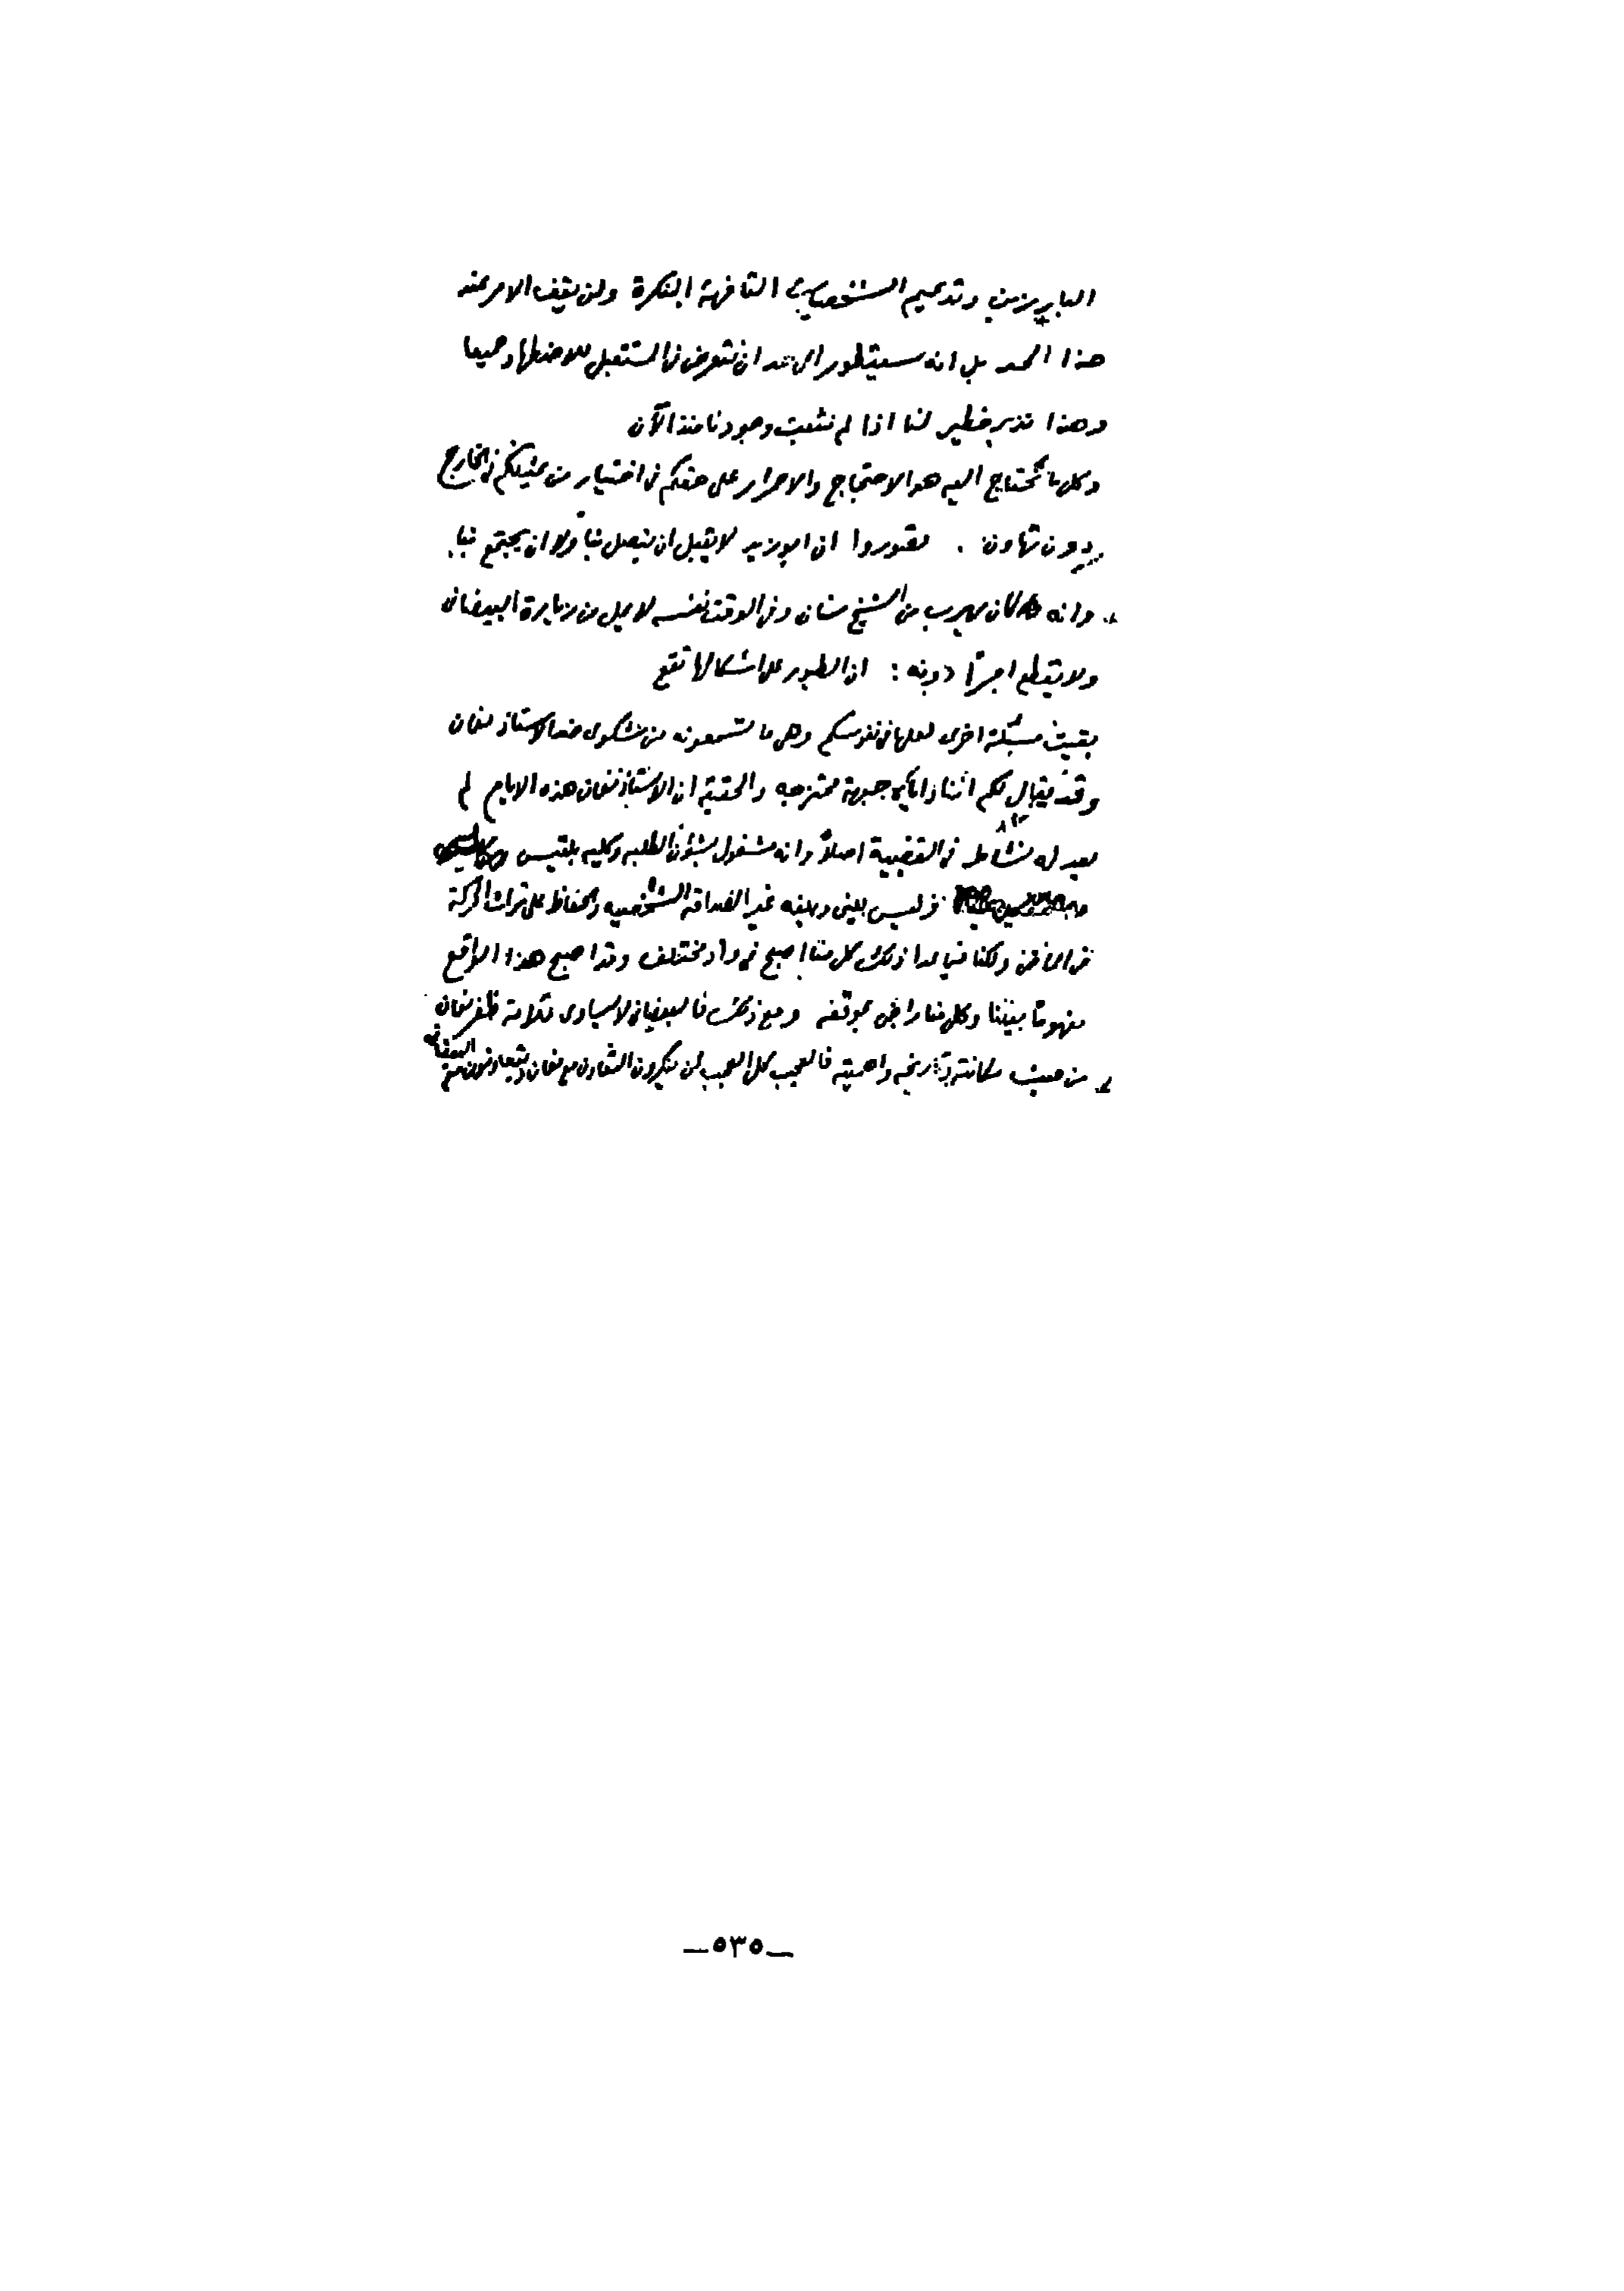 البارزين وتدعيم الشخصيات التافهة النكرة ولن يقف الامر عند
هذا الحد بل انه سيتطور الى حد ان نتعرض في المستقبل للاضطهاد جميعا
وهذا نذير خطير لنا اذا لم نثبت وجودنا منذ الآن
وكل ما نحتاج اليه هو الاحتجاج والاصرار على حقكم في اختيار من يمثلكم في الخارج
بدون تهاون . تصوروا ان ابو زيد لا يقبل ان يتصل بنا ولا ان يجتمع بنا
وانه كان يهرب من الشيخ سنان وفي الوقت نفسه لا يمل من زيارة البيضاني
ولا يقطع امراً دونه : ان الطيور على اشكالها تقع
بقيت مسئلة اخرى لعلها في نفوسكم وهي ما تسمعونه من شكوى ضد الاستاذ نعمان
وقد يقال لكم اننا واياه جبهة ممتزجه والحقيقه ان الاستاذ نعمان هذه الايام لم
يعد له نشاط في القضية اصلاً وانه مشغول بشؤون الطلبه وكليه بلقيس
فليس بيني وبينه غير الصداقه الشخصيه والحفاظ على تراث الحركة
ولكنا فيما عدا ذلك كل منا اصبح في واد مختلف وقد اصبح هذا الواقع
مفهوماً بيننا وكل منا راض بموقفه ومع ذلك فالبيضاني لا يساوي قلامة ظفر نعمان
من حيث مكانته وتاريخه واهميته فالعجب كل العجب لمن ينكرون التعاون مع نعمان ويتعاونون مع البيضاني
ـ٥٣٥ـ